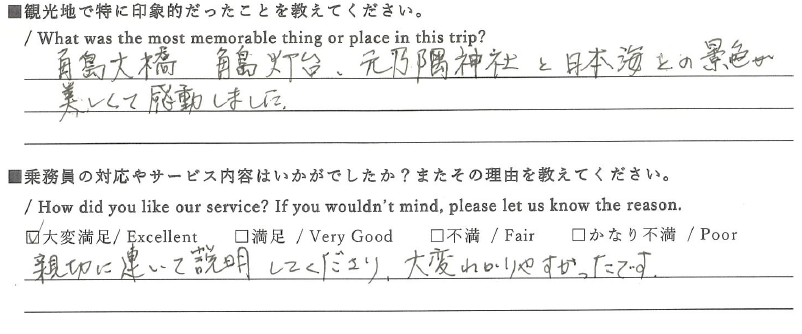 ■観光地で特に印象的だったことを教えてください。
/ What was the most memorable thing or place in this trip?
角島大橋 角島灯台、元乃隅神社と日本海との景色が
美しくて感動しました。
■乗務員の対応やサービス内容はいかがでしたか？またその理由を教えてください。
/ How did you like our service? If you wouldn't mind, please let us know the reason.
☑大変満足/ Excellent □満足 / Very Good □不満 / Fair □かなり不満 / Poor
親切に連いて説明してくださり、大変わかりやすかったです。